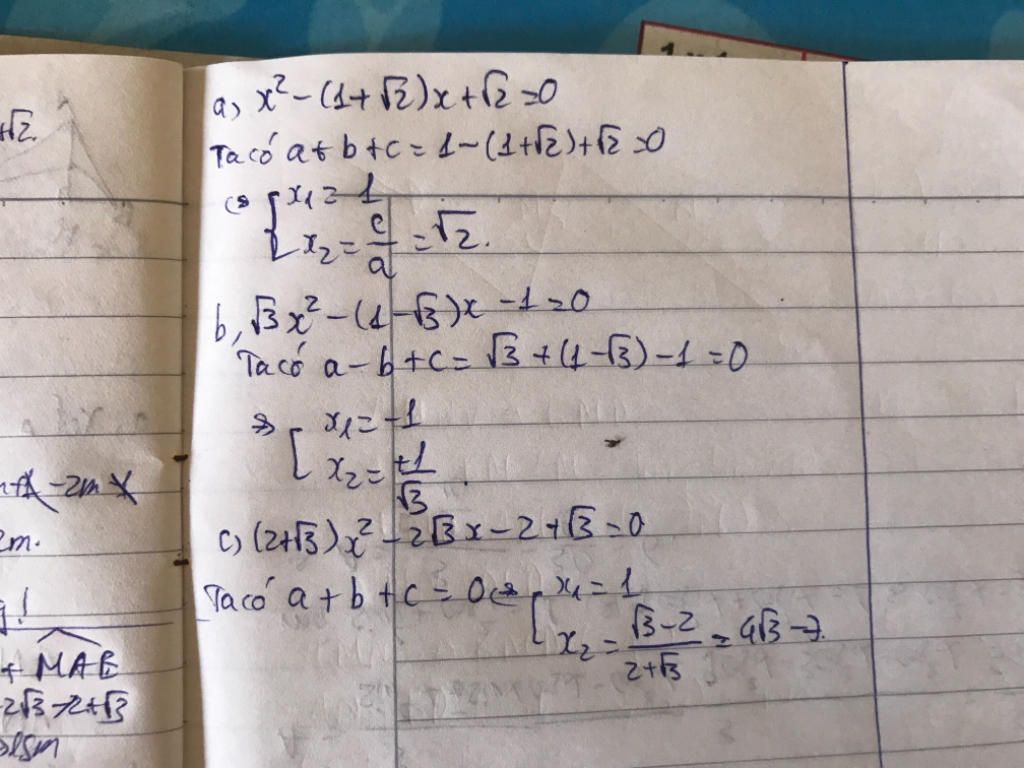 +√2.
a, x² - (1+√2)x + √2 = 0
Ta có a + b + c = 1 - (1+√2) + √2 = 0
<=> [ x₁ = 1
x₂ = c/a = √2.
b, √3x² - (1-√3)x - 1 = 0
Ta có a - b + c = √3 + (1-√3) - 1 = 0
=> [ x₁ = -1
x₂ = +1/√3.
c, (2+√3)x² - 2√3x - 2 + √3 = 0
Ta có a + b + c = 0 <=> [ x₁ = 1
x₂ = (√3-2)/(2+√3) = 4√3 - 7.
-2m
2m.
+ MAB
-2√3-2+√3